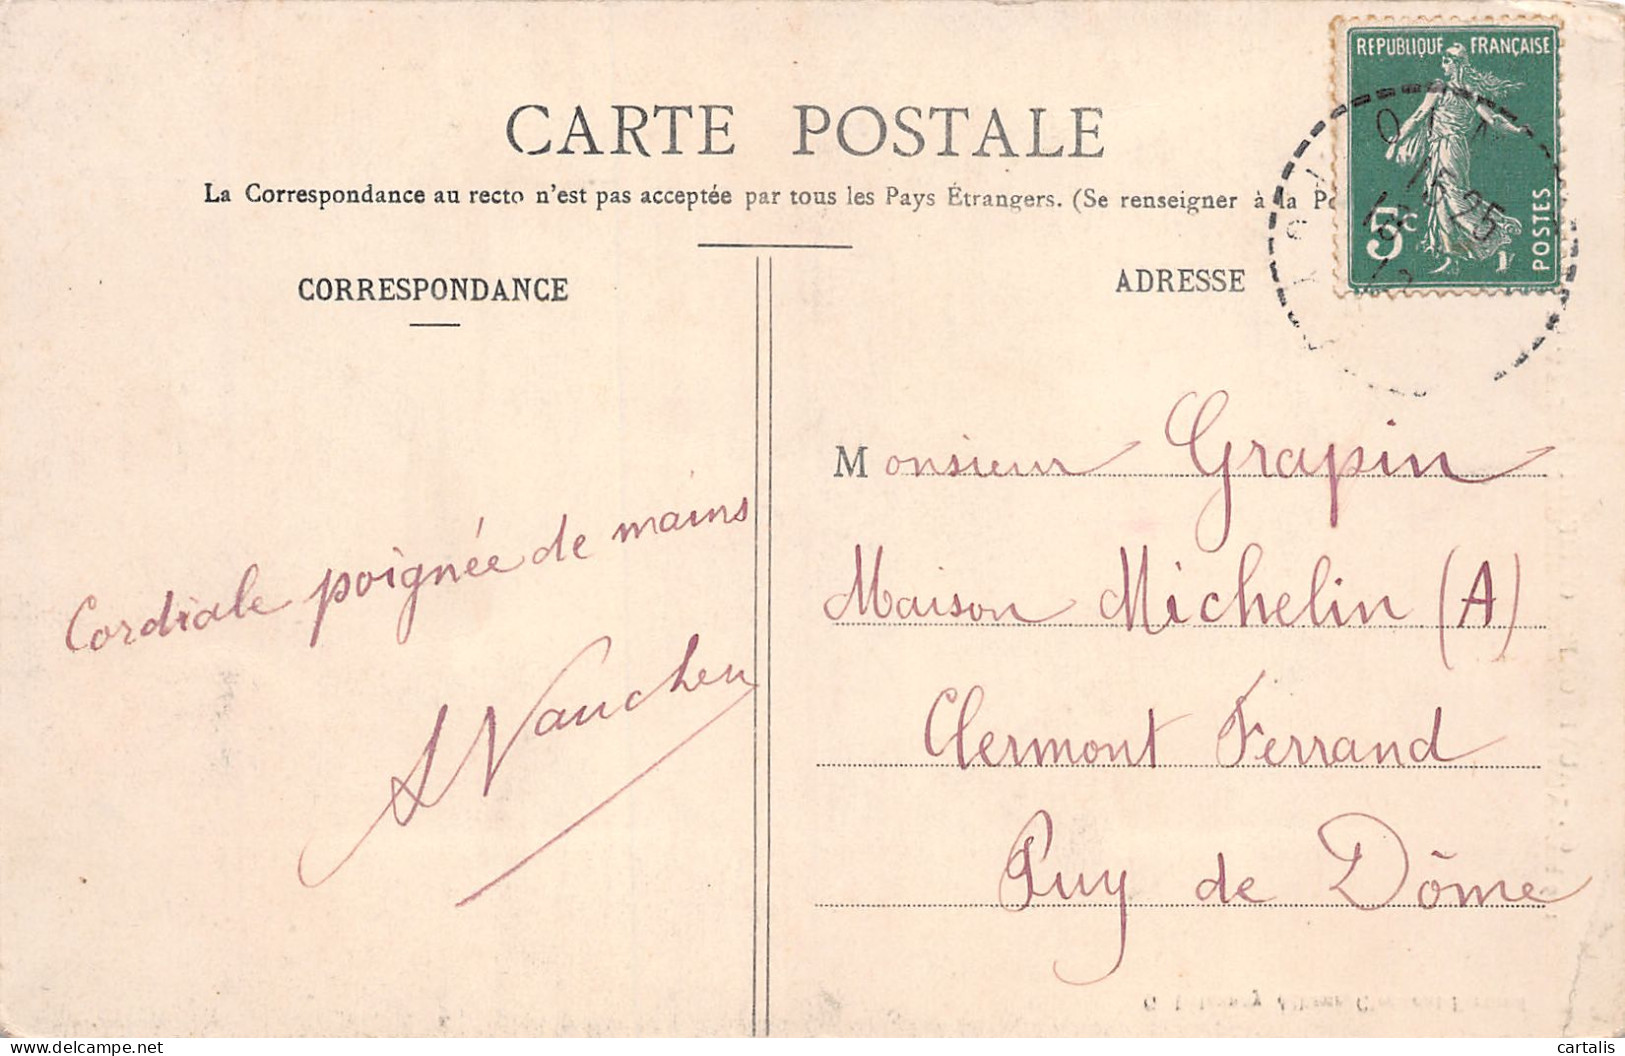 CARTE POSTALE
La Correspondance au recto n'est pas acceptée par tous les Pays Étrangers. (Se renseigner à la
REPUBLIQUE FRANÇAISE
5c
POSTES
CORRESPONDANCE
ADRESSE
Monsieur Grapin
Maison Michelin (A)
Clermont Ferrand
Puy de Dôme
Cordiale poignée de mains
cartalis